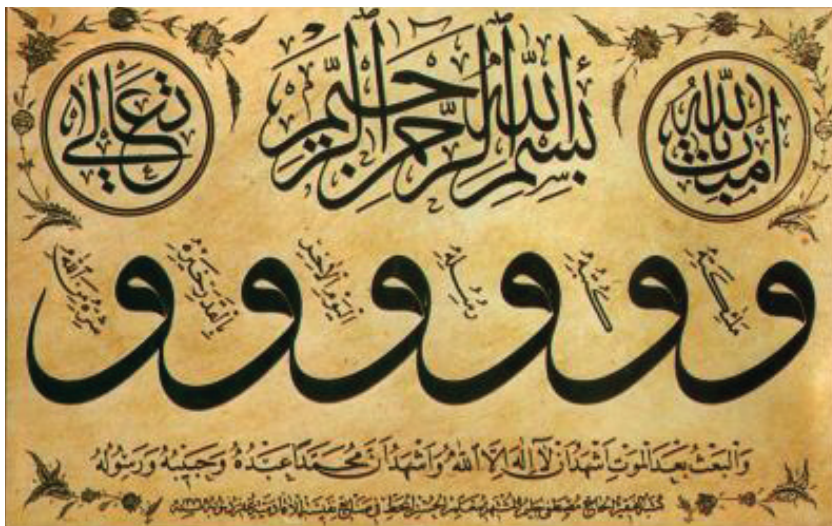 بِسْمِ اللّٰهِ الرَّحْمٰنِ الرَّحِيمِ
اٰمَنْتُ بِاللّٰهِ
تَعَالٰى
و مَلٰئِكَتِهِ
و كُتُبِهِ
و رُسُلِهِ
و الْيَوْمِ الْاٰخِرِ
و بِالْقَدَرِ خَيْرِهِ
و شَرِّهِ مِنَ اللّٰهِ
وَالْبَعْثُ بَعْدَ الْمَوْتِ اَشْهَدُ اَنْ لَا اِلٰهَ اِلَّا اللّٰهُ وَاَشْهَدُ اَنَّ مُحَمَّدًا عَبْدُهُ وَحَبِيبُهُ وَرَسُولُهُ